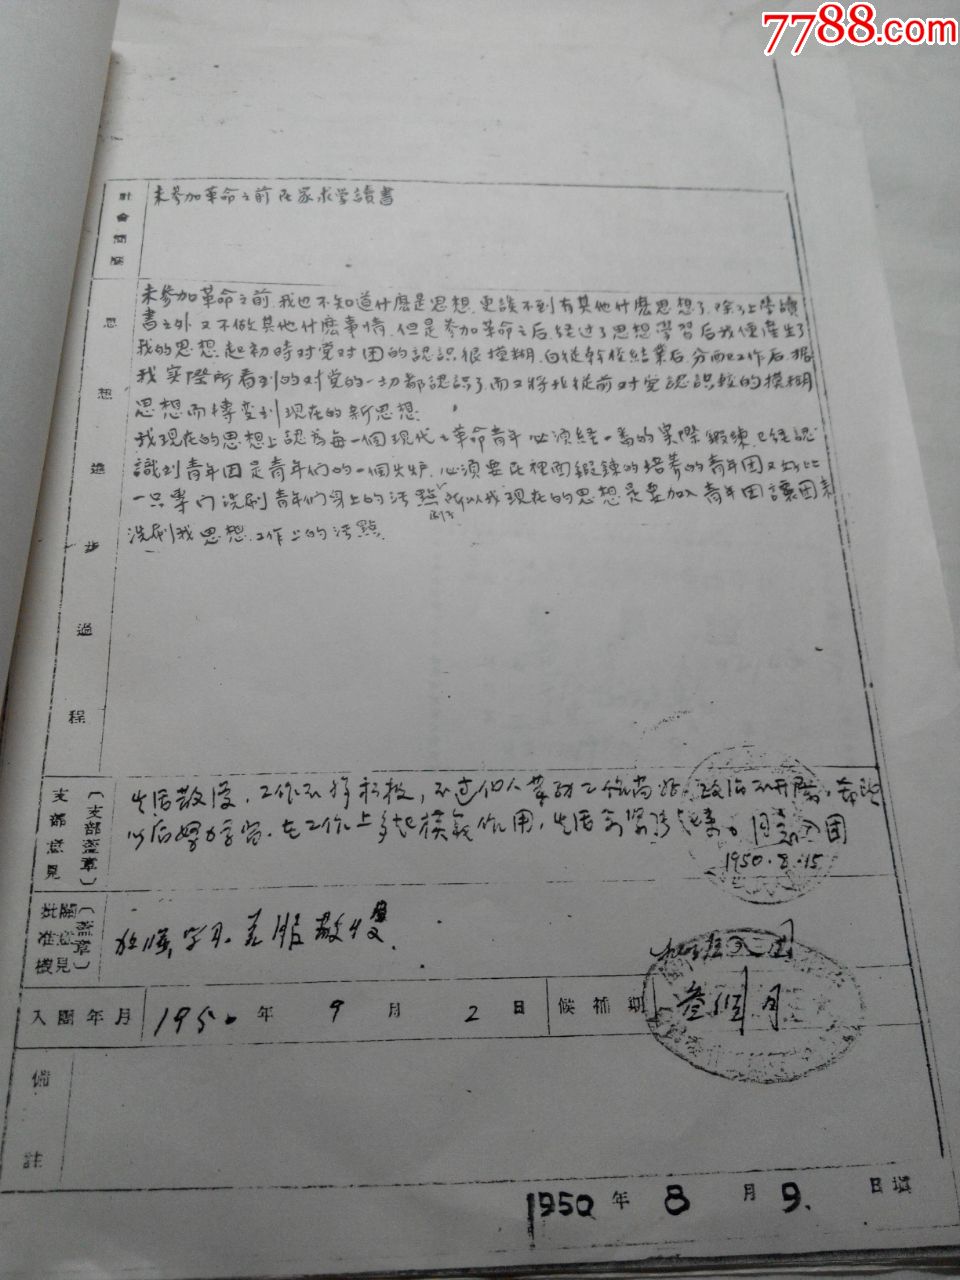 7788.com
社會簡歷
未参加革命之前在家求学讀書
思想進步過程
未参加革命之前,我也不知道什麽是思想,更談不到有其他什麽思想了,除了上學讀
書之外又不做其他什麽事情,但是参加革命之后,经过了思想學習后我便產生了
我的思想,起初時对党对团的認識很模糊,自從幹校结業后,分配工作后,据
我实際所看到的对党的一切都認識了,而又將我從前对党認識較的模糊
思想而摶变到现在的新思想.
我现在的思想上認为每一個现代之革命青年必须经一番的实際鍛練,已经認
識到青年团是青年们的一個火炉,必须要在裡面鍛鍊的培养的青年团又好比
一只專门洗刷青年们身上的污點 所以我现在的思想是要加入青年团讓团来
刷子
洗刷我思想.工作上的污點
支部意見(支部蓋章)
生活散漫,工作不够积极,不过个人劳动工作尚好,政治不开展,希望
以后努力学習,在工作上多起模範作用,生活 同意入团
1950.8.15
批准機關意見(蓋章)
学习 散慢.
入团
入團年月 1950年 9月 2日 候補期 叁個月
備註
1950年8月9.日填